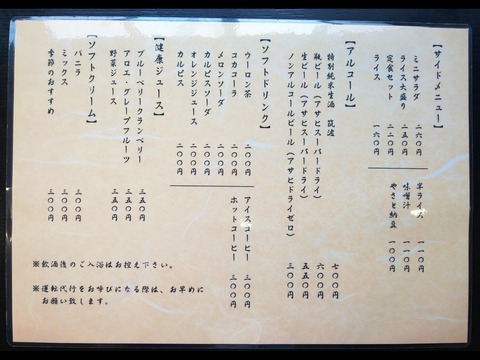 【サイドメニュー】
ミニサラダ 二六〇円
ライス大盛り 二五〇円
定食セット 三二〇円
ライス 一六〇円
半ライス 一一〇円
味噌汁 一一〇円
やさと納豆 一一〇円
【アルコール】
特別純米生酒 筑波 七〇〇円
瓶ビール(アサヒスーパードライ) 六〇〇円
生ビール(アサヒスーパードライ) 五五〇円
ノンアルコールビール(アサヒドライゼロ) 三〇〇円
【ソフトドリンク】
ウーロン茶 二〇〇円
コカコーラ 二〇〇円
メロンソーダ 二〇〇円
カルピスソーダ 二〇〇円
オレンジジュース 二〇〇円
カルピス 二〇〇円
アイスコーヒー 三〇〇円
ホットコーヒー 三〇〇円
【健康ジュース】
ブルーベリークランベリー 三五〇円
アロエ・グレープフルーツ 三五〇円
野菜ジュース 三五〇円
【ソフトクリーム】
バニラ 三〇〇円
ミックス 三〇〇円
季節のおすすめ 三〇〇円
※飲酒後のご入浴はお控え下さい。
※運転代行をお呼びになる際は、お早めに
お願い致します。